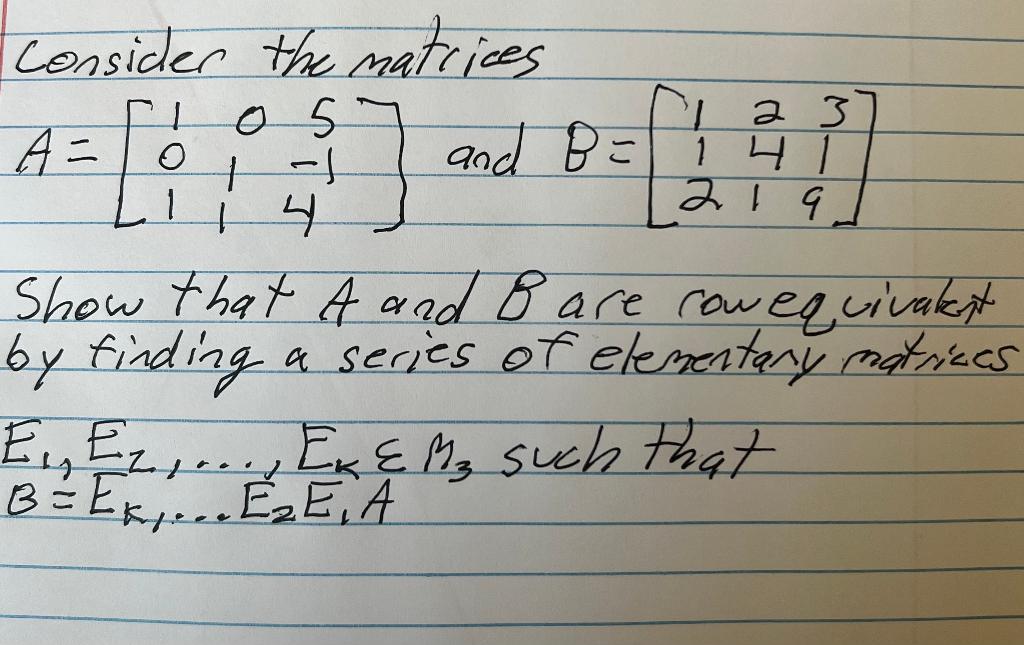 Consider the matrices
A = [ 1 0 5
0 1 -1
1 1 4 ] and B = [ 1 2 3
1 4 1
2 1 9 ]
Show that A and B are row equivalent
by finding a series of elementary matrices
E₁, E₂, ..., Eₖ ∈ M₃ such that
B = Eₖ, ... E₂E₁A